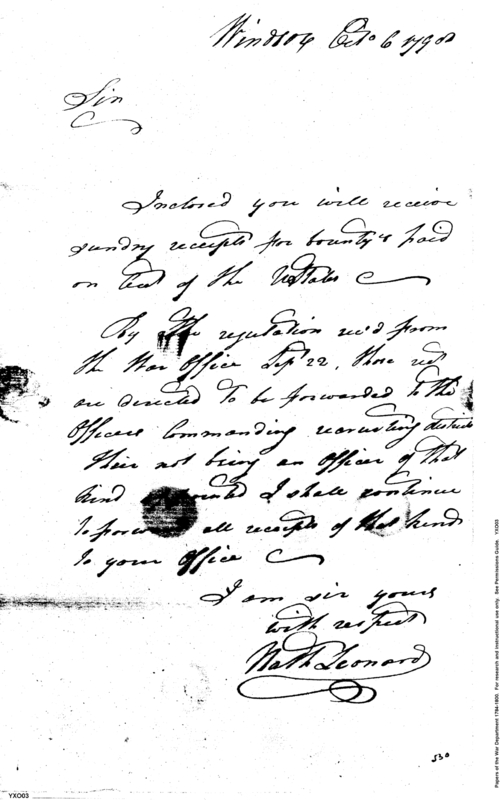 Windsor Octo 6 1798
Sir
Inclosed you will receive
sundry receipts for bounty's paid
on acct of the UStates
By the regulation rec'd from
the War Office Sept 22, those rects
are directed to be forwarded to the
Officers Commanding recruiting districts
their not being an Officer of that
kind I shall continue
to forward all receipts of that kind
to your Office
I am sir yours
with respect
Nath Leonard
530
YXO03
Papers of the War Department 1784-1800. For research and instructional use only. See Permissions Guide. YXO03